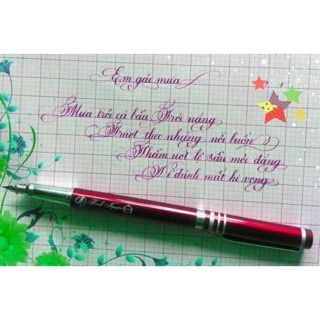 Em gái mưa
Mưa trôi cả bầu Trời nắng
Trượt theo những nỗi buồn
Thấm ướt lệ sầu môi đắng
Vì đánh mất hi vọng